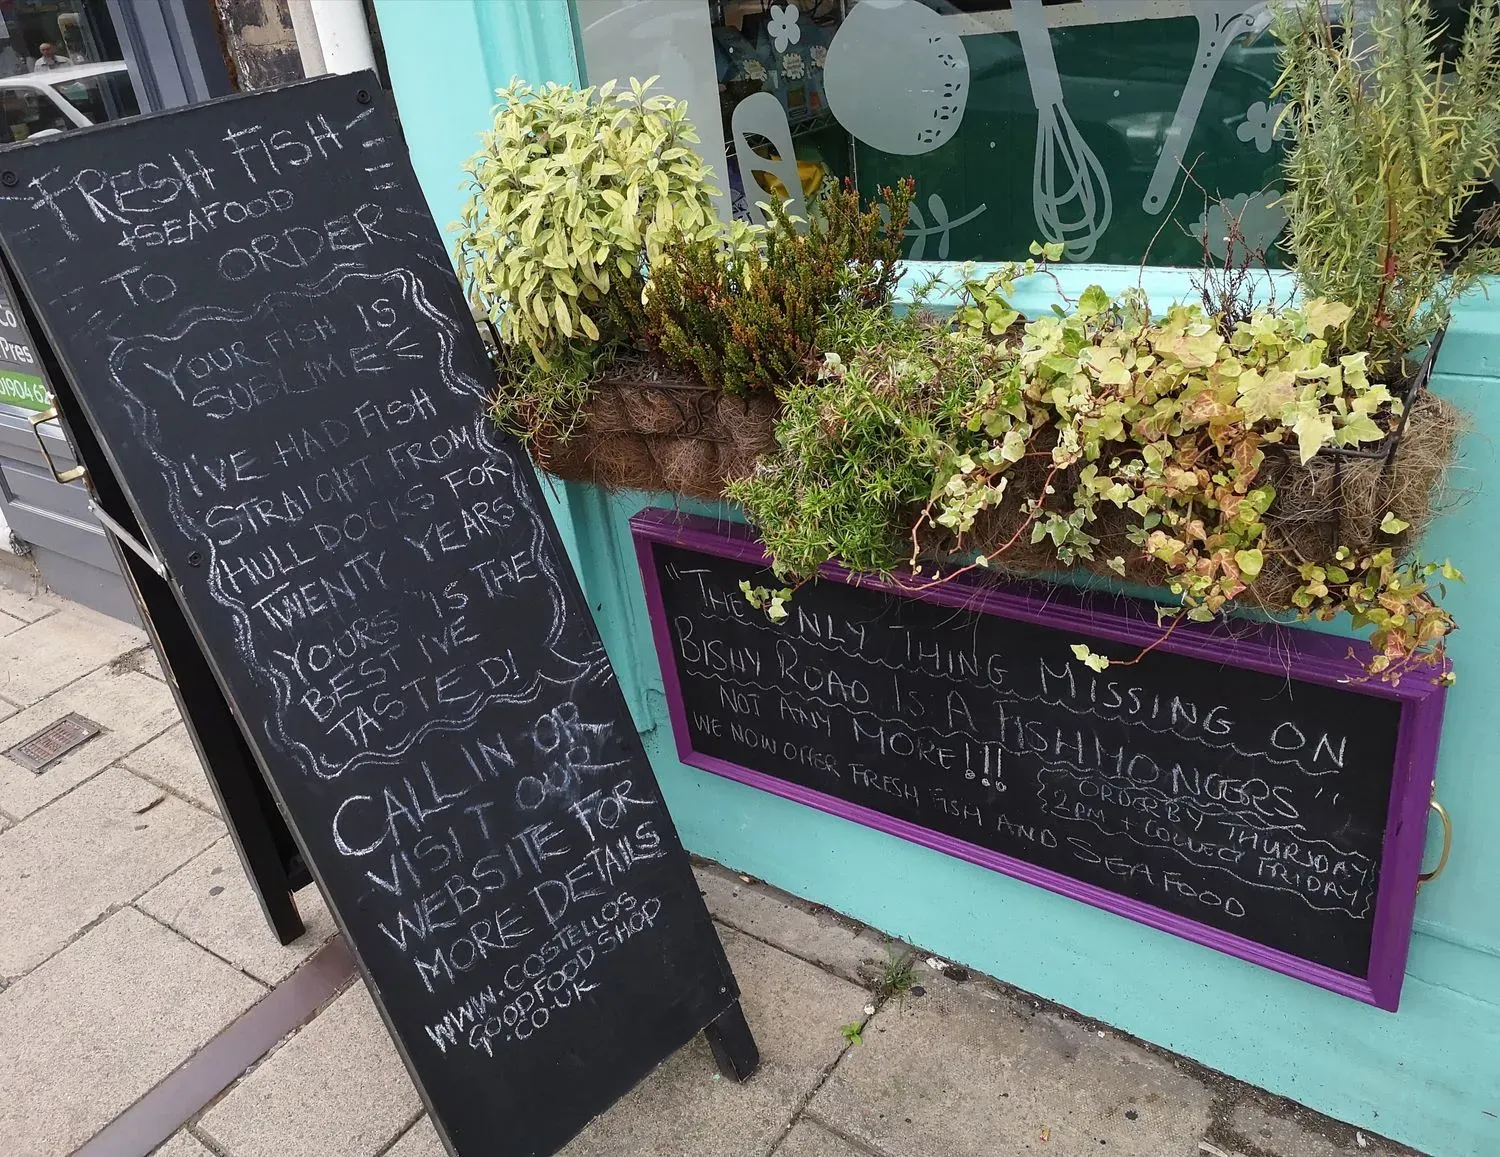 FRESH FISH
+SEAFOOD
TO ORDER
YOUR FISH IS
SUBLIME
I'VE HAD FISH
STRAIGHT FROM
HULL DOCKS FOR
TWENTY YEARS
YOURS IS THE
BEST IVE
TASTED!
CALL IN OR
VISIT OUR
WEBSITE FOR
MORE DETAILS
WWW.COSTELLOS
GOODFOODSHOP
.CO.UK
"THE ONLY THING MISSING ON
BISHY ROAD IS A FISHMONGERS"
NOT ANY MORE!!!
WE NOW OFFER FRESH FISH AND SEAFOOD
ORDER BY THURSDAY
2PM + COLLECT FRIDAY
Co
Pres
01904 62